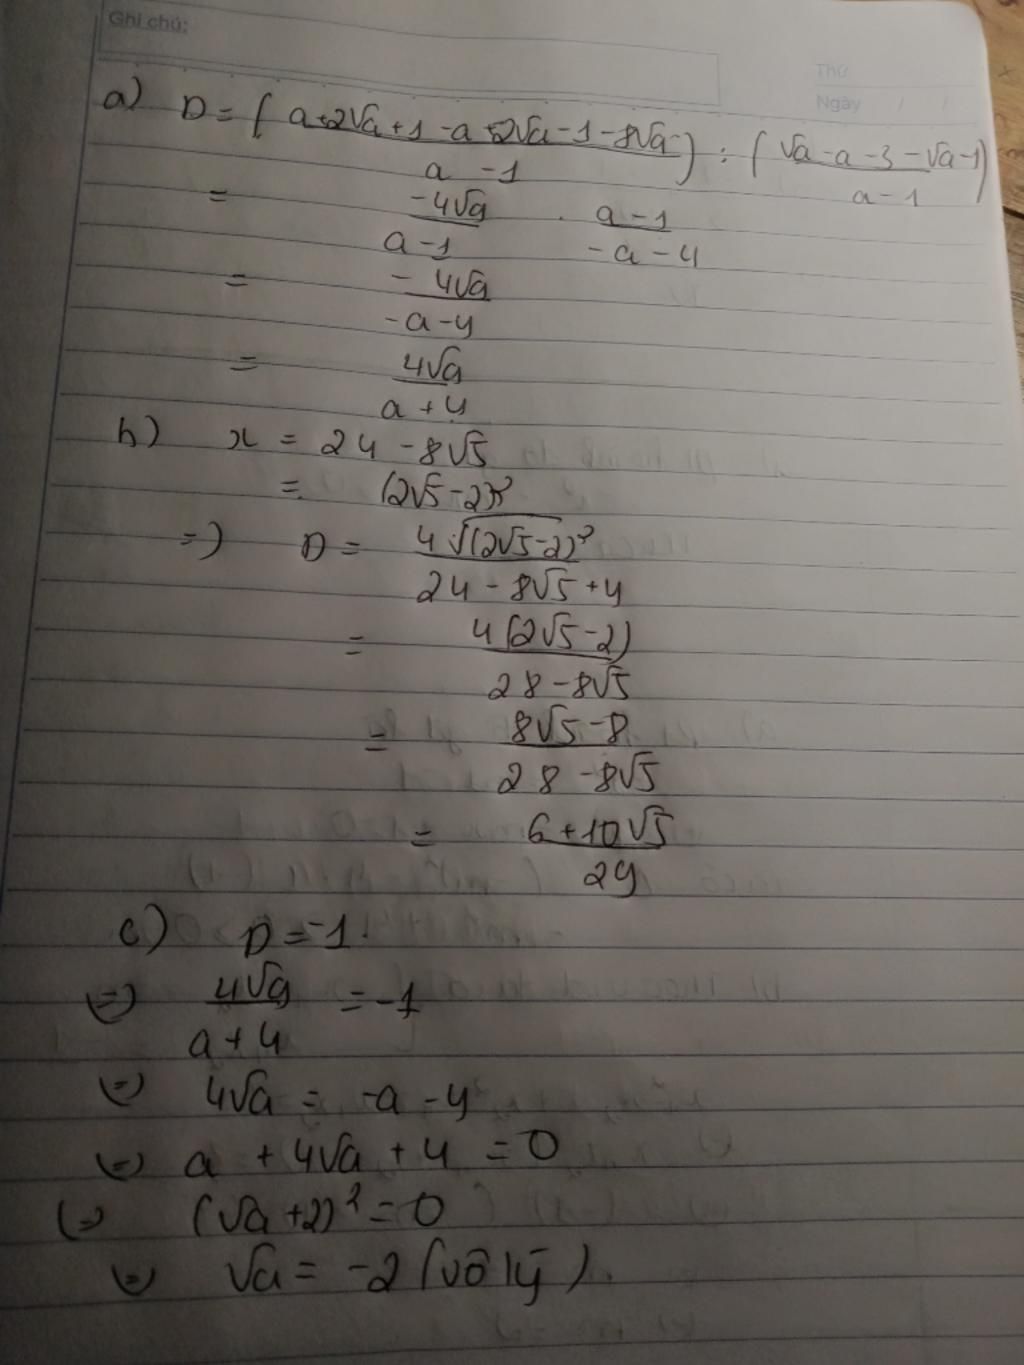 Ghi chú:
Thứ
Ngày / /
a) D = ( a+2√a+1-a+2√a-1-8√a / a-1 ) : ( √a-a-3-√a-1 / a-1 )
= -4√a / a-1 . a-1 / -a-4
= -4√a / -a-4
= 4√a / a+4
b) x = 24 - 8√5
= (2√5-2)²
=) D = 4√(2√5-2)² / 24-8√5+4
= 4(2√5-2) / 28-8√5
= 8√5-8 / 28-8√5
= 6+10√5 / 29
c) D = -1.
(=) 4√a / a+4 = -1
(=) 4√a = -a-4
(=) a + 4√a + 4 = 0
(=) (√a+2)² = 0
(=) √a = -2 (vô lý).